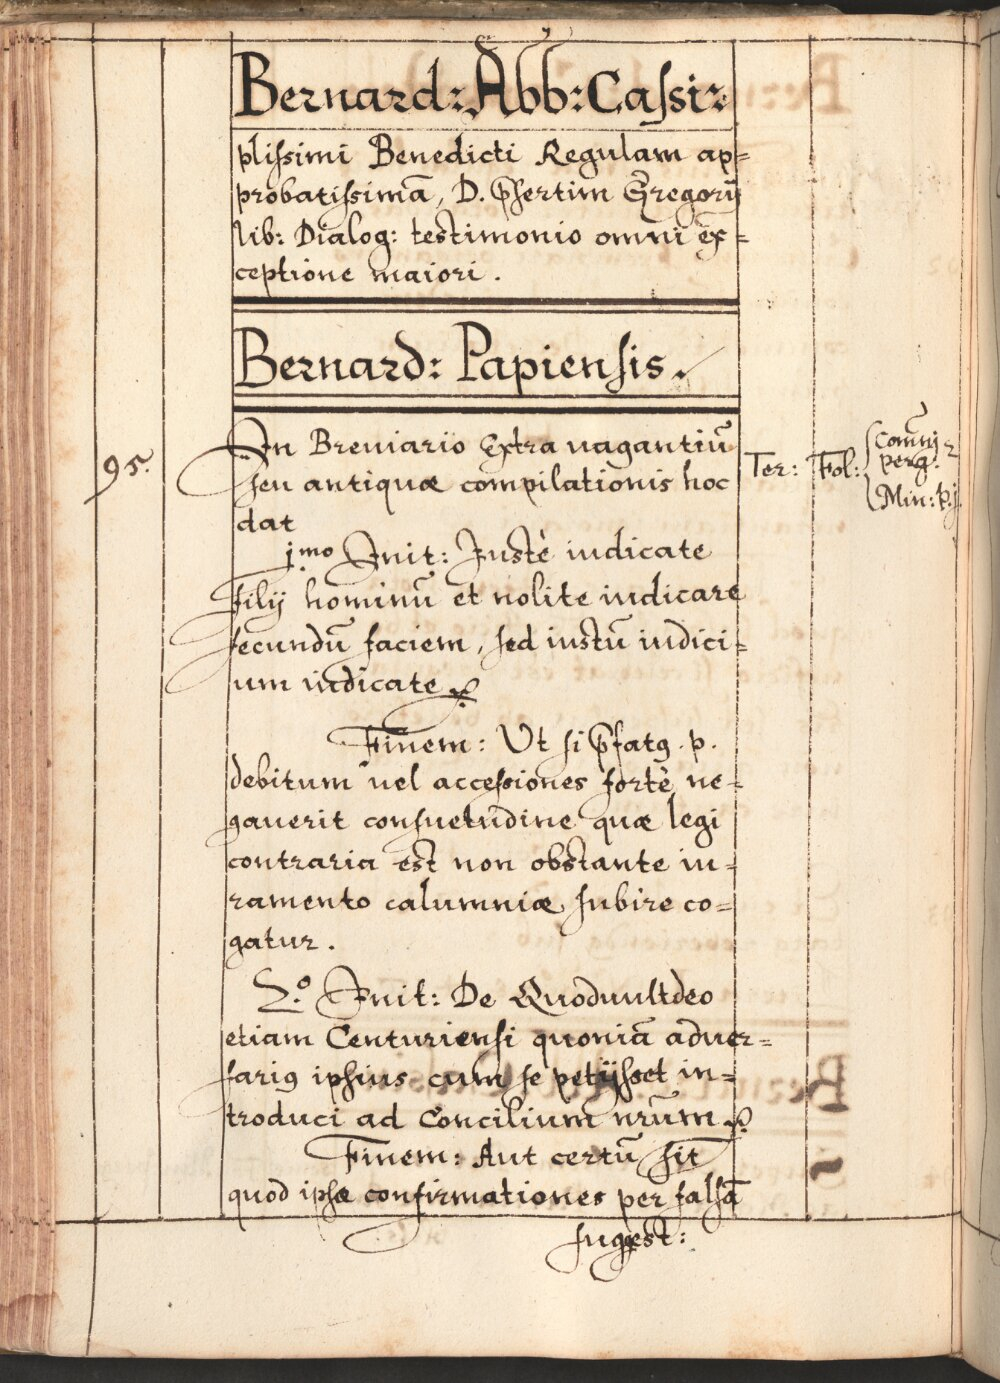 Bernard: Abb: Cassi:
plissimi Benedicti Regulam ap=
probatissimā, D. p̄sertim Gregorij
lib: Dialog: testimonio omni ex=
ceptione maiori.
Bernard: Papiensis.
95.
In Breuiario Extra uagantiū
seu antiquæ compilationis hoc
dat
Ter: Fol:
Com̄nj
perg:
Min:
jmo Init: Justè iudicate
filij hominū et nolite iudicare
secundū faciem, sed iustū iudici=
um iudicate
Finem: Ut si p̄fatꝯ. p.
debitum uel accessiones fortè ne=
gauerit consuetudine quæ legi
contraria est non obstante iu=
ramento calumniæ subire co=
gatur.
2.o Init: De Quoduultdeo
etiam Centuriensi quoniā aduer=
sariꝯ ipsius cum se petijsset in=
troduci ad Concilium nr̄um
Finem: Aut certū sit
quod ipsæ confirmationes per falsā
sugest: